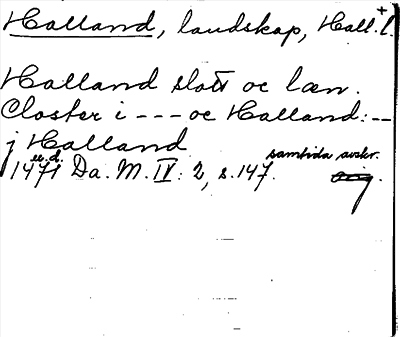 Halland, landskap, Hall. l.
+
Halland slott oc læn.
Closter i --- oc Halland: --
j Halland
u.d. samtida avskr.
1471 Da. M. IV: 2, s. 147. orig.